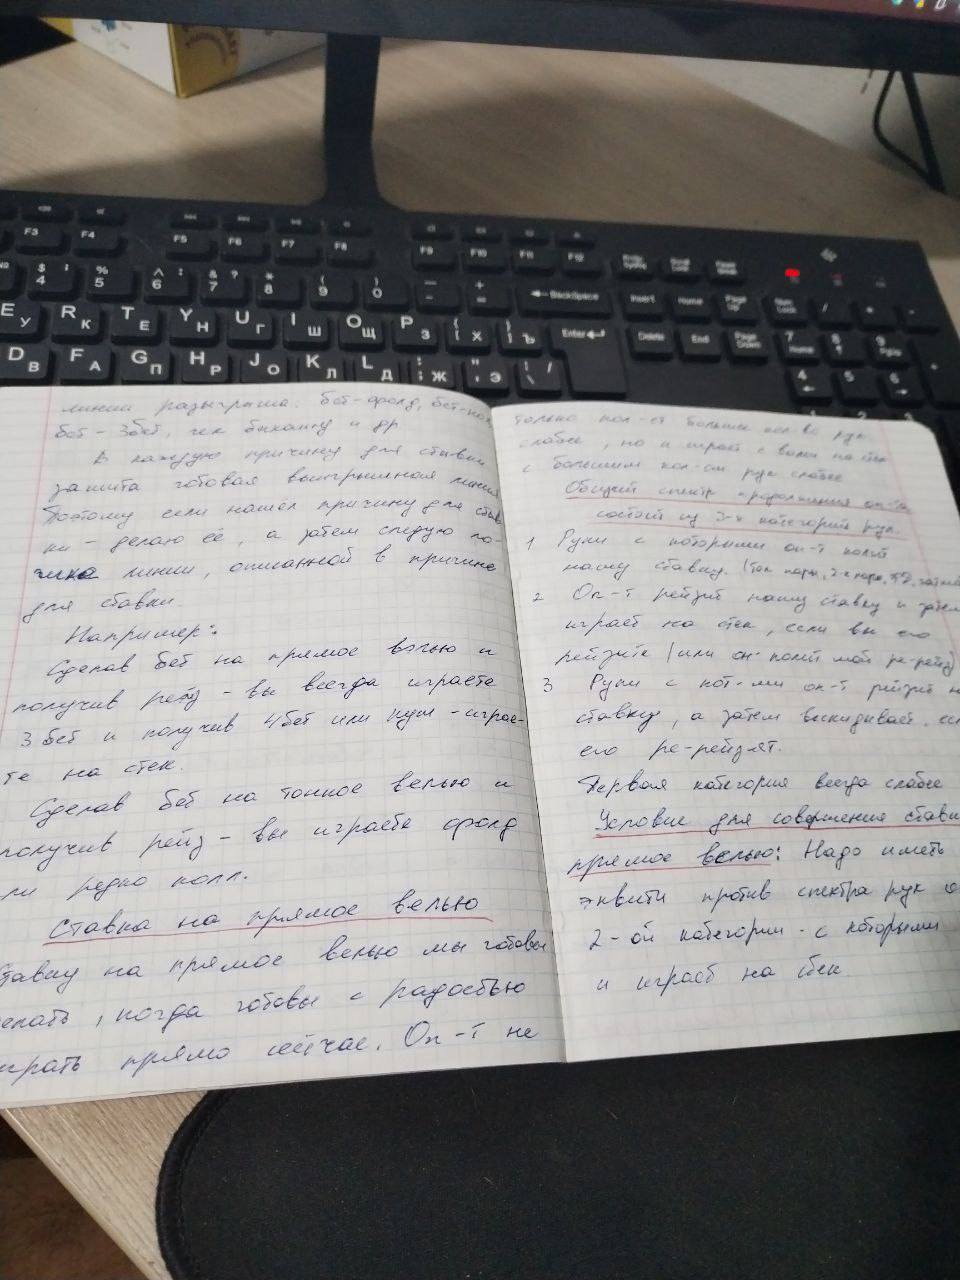 линии розыгрыша: бет-фолд, бет-кол
бет - 3бет, чек бихайнд и др
В каждую причину для ставки
зашита готовая выигрышная линия
Поэтому если нашёл причину для став
ки - делаю её, а затем следую ло-
гике линии, описанной в причине
для ставки.
Например:
Сделав бет на прямое вэлью и
получив рейз - вы всегда играете
3 бет и получив 4бет или пуш - играе-
те на стек.
Сделав бет на тонкое велью и
получив рейз - вы играете фолд
ли редко колл.
Ставка на прямое велью
тавку на прямое велью мы готовы
елать, когда готовы с радостью
играть прямо сейчас. Оп-т не
только кол-ет больше кол-во рук
слабее, но и играет с вами на стек
с большим кол-ом рук слабее
Общий спектр продолжения оп-та
состоит из 3-х категорий рук.
1 Руки с которыми оп-т колит
нашу ставку. (топ пары, 2-е пары,
2 Оп-т рейзит нашу ставку и затем
играет на стек, если вы его
рейзите (или он колит мой ре-рейз)
3 Руки с кот-ми оп-т рейзит н
ставку, а затем выкидывает, ес
его ре-рейзят.
Первая категория всегда слабее
Условие для совершения ставки
прямое велью: Надо иметь
эквити против спектра рук о
2-ой категории - с которыми
и играет на стек
F3 F4 F5 F6 F7 F8 F9 F10 F11 F12
$ ; 4 % 5 ^ : 6 & ? 7 * 8 ( 9 ) 0 - + = BackSpace Insert Home Page Up Num Lock / * -
E У R К T Е Y Н U Г I Ш O Щ P З { [ Х } ] Ъ Enter Delete End Page Down 7 Home 8 9 PgUp
D В F А G П H Р J О K Л L Д : ; Ж " ' Э \ / 4 5 6